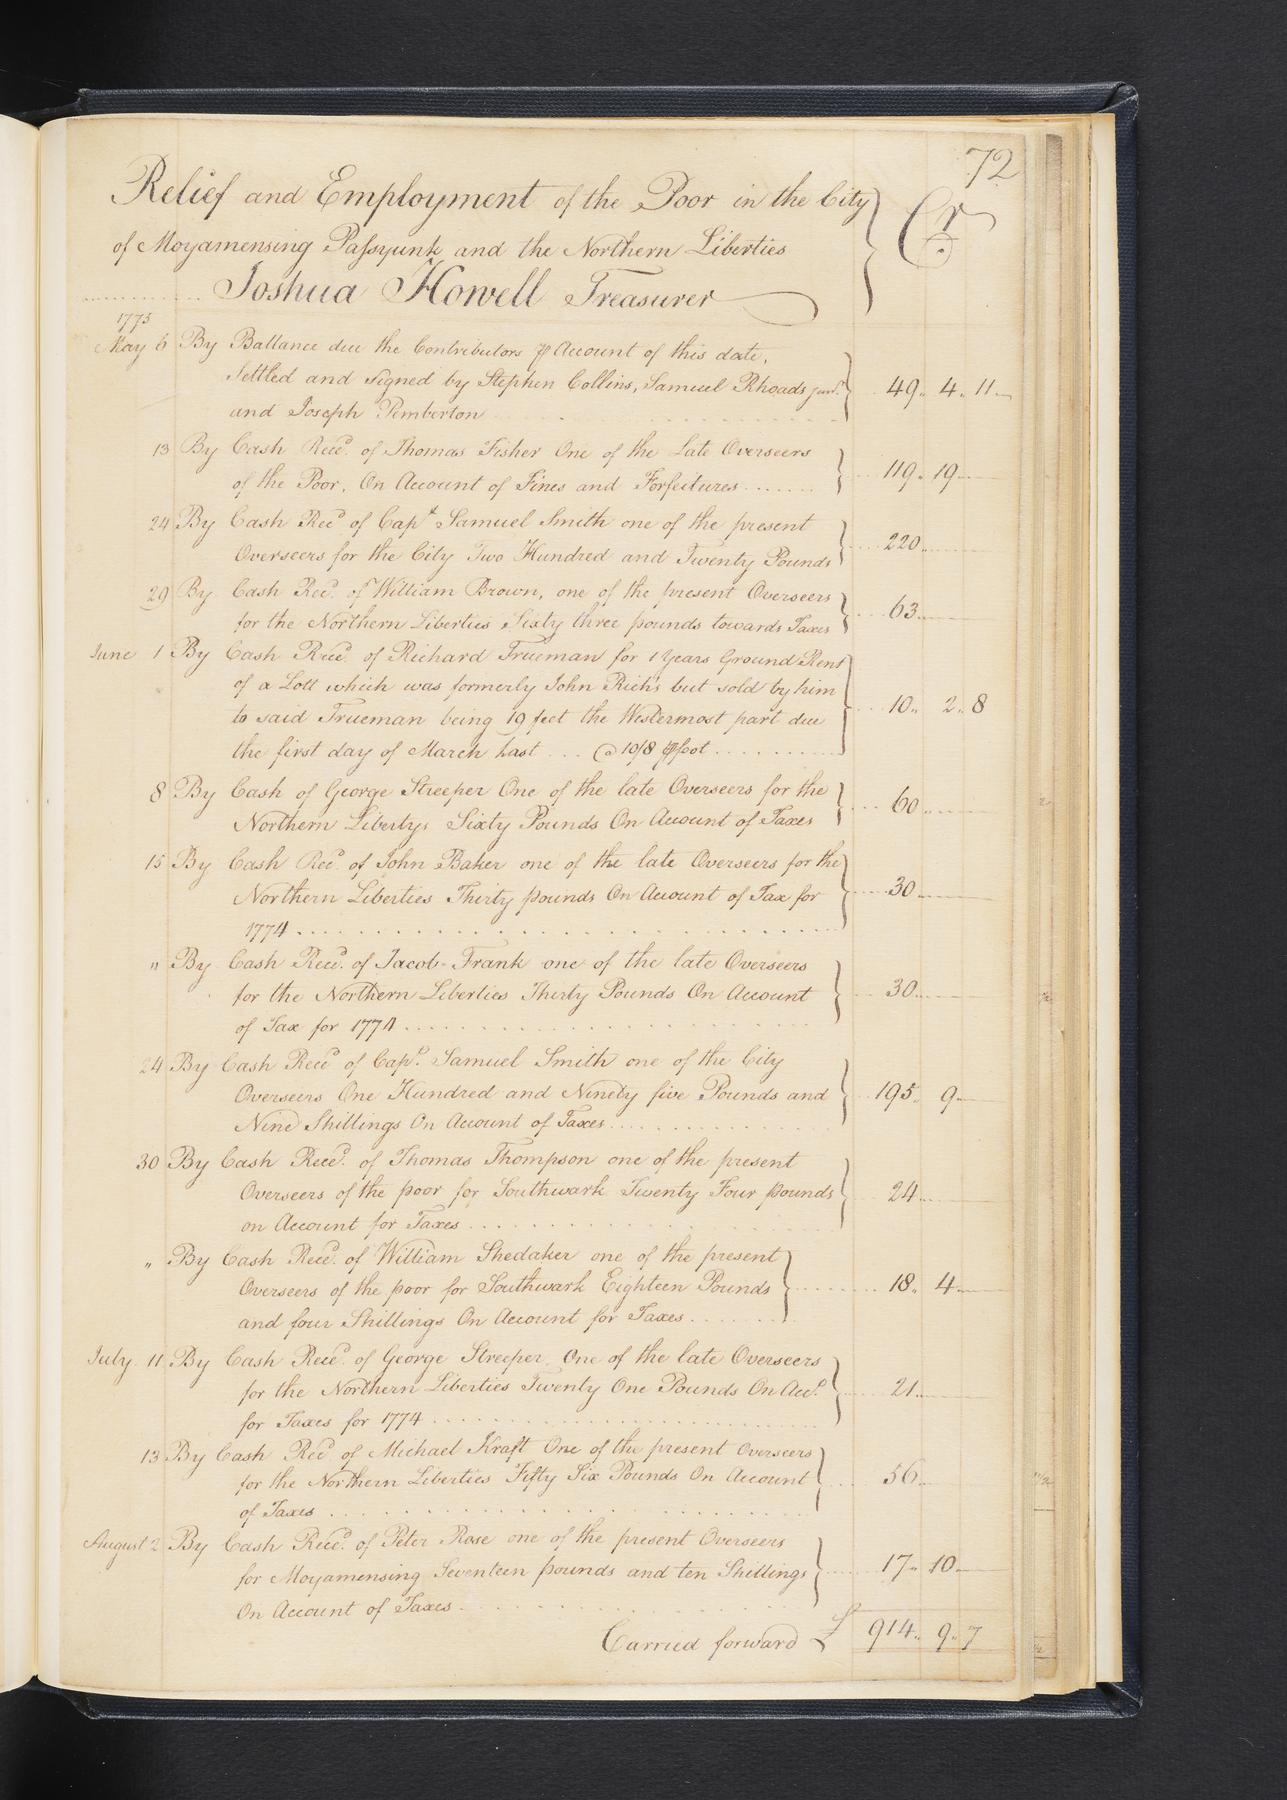 72
Relief and Employment of the Poor in the City
of Moyamensing Passyunk and the Northern Liberties
Cr.
Joshua Howell Treasurer
1775
May 6 By Ballance due the Contributors ⅌ Account of this date,
Settled and Signed by Stephen Collins, Samuel Rhoads junr. 49 .. 4 .. 11
and Joseph Pemberton
13 By Cash Recd. of Thomas Fisher One of the Late Overseers
of the Poor, On Account of Fines and Forfeitures 119 .. 19
24 By Cash Recd of Capt Samuel Smith one of the present
Overseers for the City Two Hundred and Twenty Pounds 220
29 By Cash Recd. of William Brown, one of the present Overseers
for the Northern Liberties Sixty three pounds towards Taxes 63
June 1 By Cash Recd. of Richard Trueman for 1 Years Ground Rent
of a Lott which was formerly John Rich's but sold by him
to said Trueman being 19 feet the Westermost part due 10 .. 2 .. 8
the first day of March Last @ 10/8 ⅌ foot
8 By Cash of George Streeper One of the late Overseers for the
Northern Libertys Sixty Pounds On Account of Taxes 60
15 By Cash Recd. of John Baker one of the late Overseers for the
Northern Liberties Thirty pounds On Account of Tax for 30
1774
" By Cash Recd. of Jacob Frank one of the late Overseers
for the Northern Liberties Thirty Pounds On Account 30
of Tax for 1774
24 By Cash Recd of Capt. Samuel Smith one of the City
Overseers One Hundred and Ninety five Pounds and 195 .. 9
Nine Shillings On Account of Taxes
30 By Cash Recd. of Thomas Thompson one of the present
Overseers of the poor for Southwark Twenty Four pounds 24
on Account for Taxes
" By Cash Recd. of William Shedaker one of the present
Overseers of the poor for Southwark Eighteen Pounds 18 .. 4
and four Shillings On Account for Taxes
July 11 By Cash Recd. of George Streeper One of the late Overseers
for the Northern Liberties Twenty One Pounds On Acct. 21
for Taxes for 1774
13 By Cash Recd of Michael Kraft One of the present Overseers
for the Northern Liberties Fifty Six Pounds On Account 56
of Taxes
August 2 By Cash Recd. of Peter Rose one of the present Overseers
for Moyamensing Seventeen pounds and ten Shillings 17 .. 10
On Account of Taxes
Carried forward £ 914 .. 9 .. 7